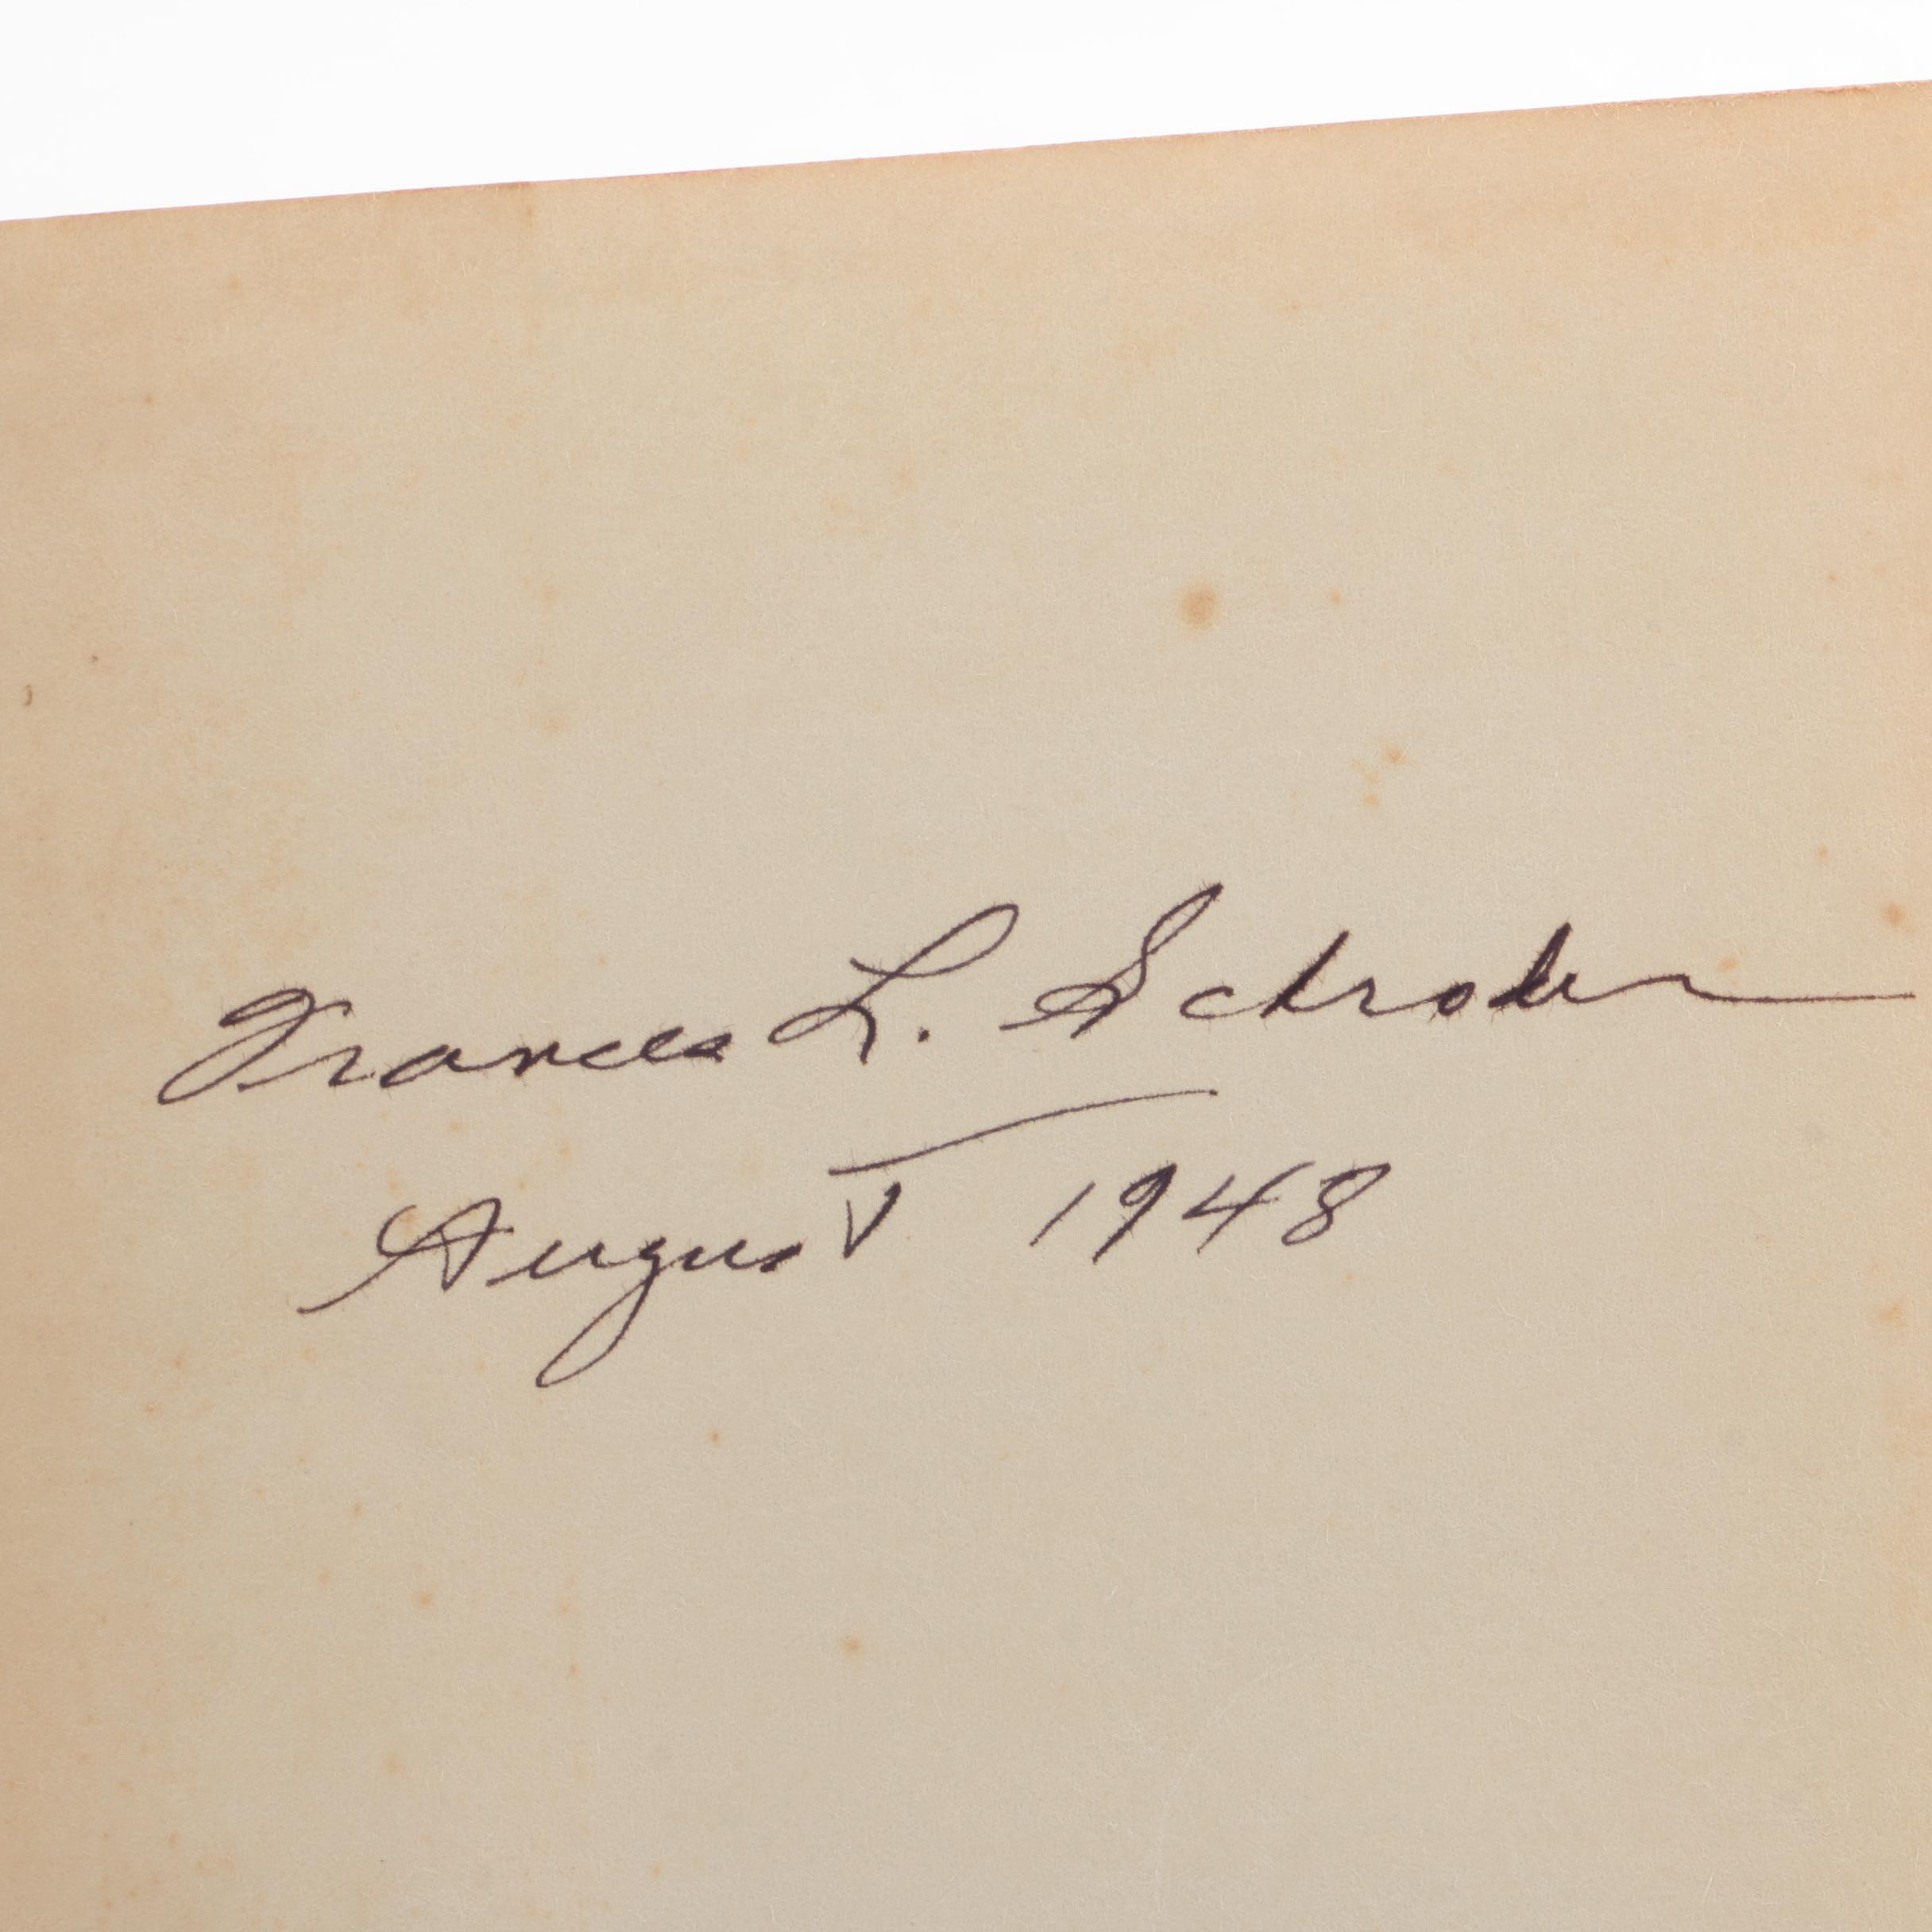 Frances L. Schrober
August 1948